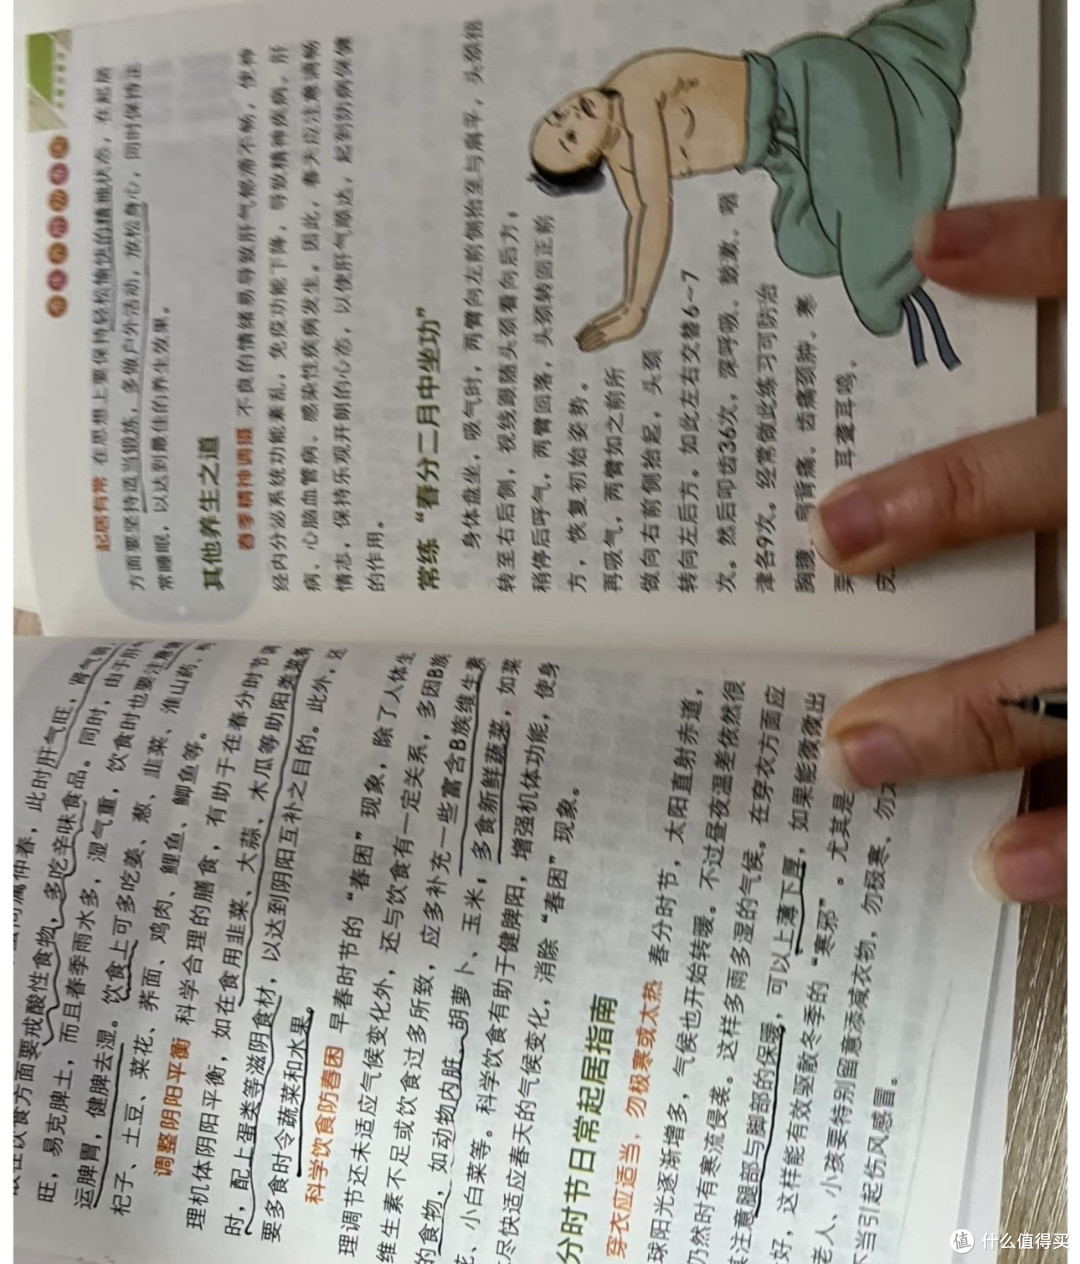 在饮食方面要戒酸性食物,多吃辛味食品。同时,由于肝气
旺,易克脾土,而且春季雨水多,湿气重,饮食时也要注意健
运脾胃,健脾去湿。饮食上可多吃姜、葱、韭菜、淮山药、枸
杞子、土豆、菜花、荞面、鸡肉、鲤鱼、鲫鱼等。
调整阴阳平衡 科学合理的膳食,有助于在春分时节调
理机体阴阳平衡,如在食用韭菜、大蒜、木瓜等助阳类菜肴
时,配上蛋类等滋阴食材,以达到阴阳互补之目的。此外,还
要多食时令蔬菜和水果。
科学饮食防春困 早春时节的“春困”现象,除了人体生
理调节还未适应气候变化外,还与饮食有一定关系,多因B族
维生素不足或饮食过多所致,应多补充一些富含B族维生素
的食物,如动物内脏、胡萝卜、玉米,多食新鲜蔬菜,如菜
花、小白菜等。科学饮食有助于健脾阳,增强机体功能,使身
尽快适应春天的气候变化,消除“春困”现象。
分时节日常起居指南
穿衣应适当,勿极寒或太热 春分时节,太阳直射赤道,
球阳光逐渐增多,气候也开始转暖。不过昼夜温差依然很
仍然时有寒流侵袭。这样多雨多湿的气候。在穿衣方面应
其注意腿部与脚部的保暖,可以上薄下厚,如果能微微出
好,这样能有效驱散冬季的“寒邪”。尤其是
老人、小孩要特别留意添减衣物,勿极寒、勿太
不当引起伤风感冒。
起居有常 在思想上要保持轻松愉快的精神状态,在起居
方面要坚持适当锻炼,多做户外活动,放松身心,同时保持正
常睡眠,以达到最佳的养生效果。
其他养生之道
春季精神调摄 不良的情绪易导致肝气郁滞不畅,使神
经内分泌系统功能紊乱,免疫功能下降,导致精神疾病、肝
病、心脑血管病、感染性疾病发生。因此,春天应注意调畅
情志,保持乐观开朗的心态,以使肝气顺达,起到防病保健
的作用。
常练“春分二月中坐功”
身体盘坐,吸气时,两臂向左前侧抬至与肩平,头颈扭
转至右后侧,视线跟随头颈看向后方,
稍停后呼气,两臂回落,头颈转回正前
方,恢复初始姿势。
再吸气,两臂如之前所
做向右前侧抬起,头颈
转向左后方,如此左右交替6~7
次。然后叩齿36次,深呼吸、鼓漱、咽
津各9次。经常做此练习可防治
胸臆、肩背痛、齿痛颈肿、寒
栗 耳聋耳鸣、
皮
值 什么值得买